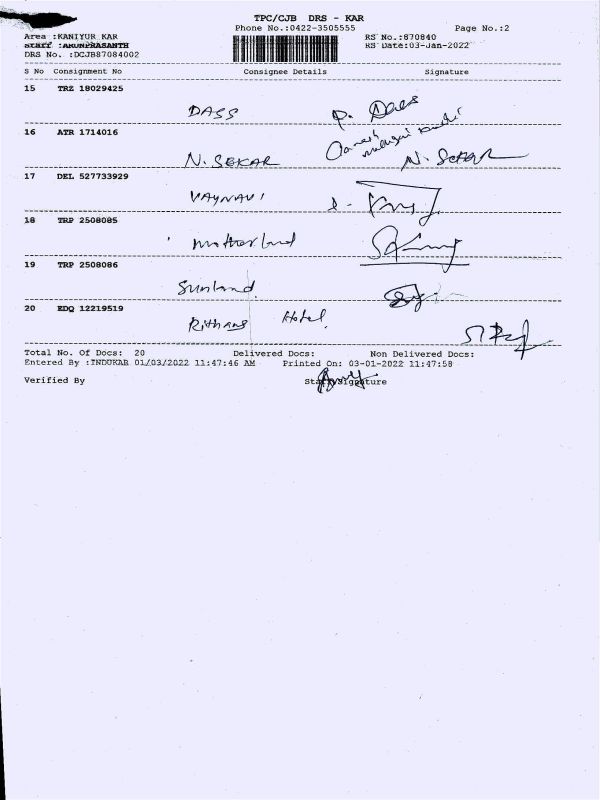 TPC/CJB DRS - KAR
Phone No.:0422-3505555 Page No.:2
Area :KANIYUR KAR RS No.:870840
Staff :ARUNPRASANTH RS Date:03-Jan-2022
DRS No. :DCJB87084002
S No Consignment No Consignee Details Signature
15 TRZ 18029425
DASS P. Dass
16 ATR 1714016
N. SEKAR N. SEKAR
17 DEL 527733929
VAYNAVI
18 TRP 2508085
motherland
19 TRP 2508086
Sunland
20 EDQ 12219519
Rithans Hotel
Total No. Of Docs: 20 Delivered Docs: Non Delivered Docs:
Entered By :INDUKAR 01/03/2022 11:47:46 AM Printed On: 03-01-2022 11:47:58
Verified By Staff Signature